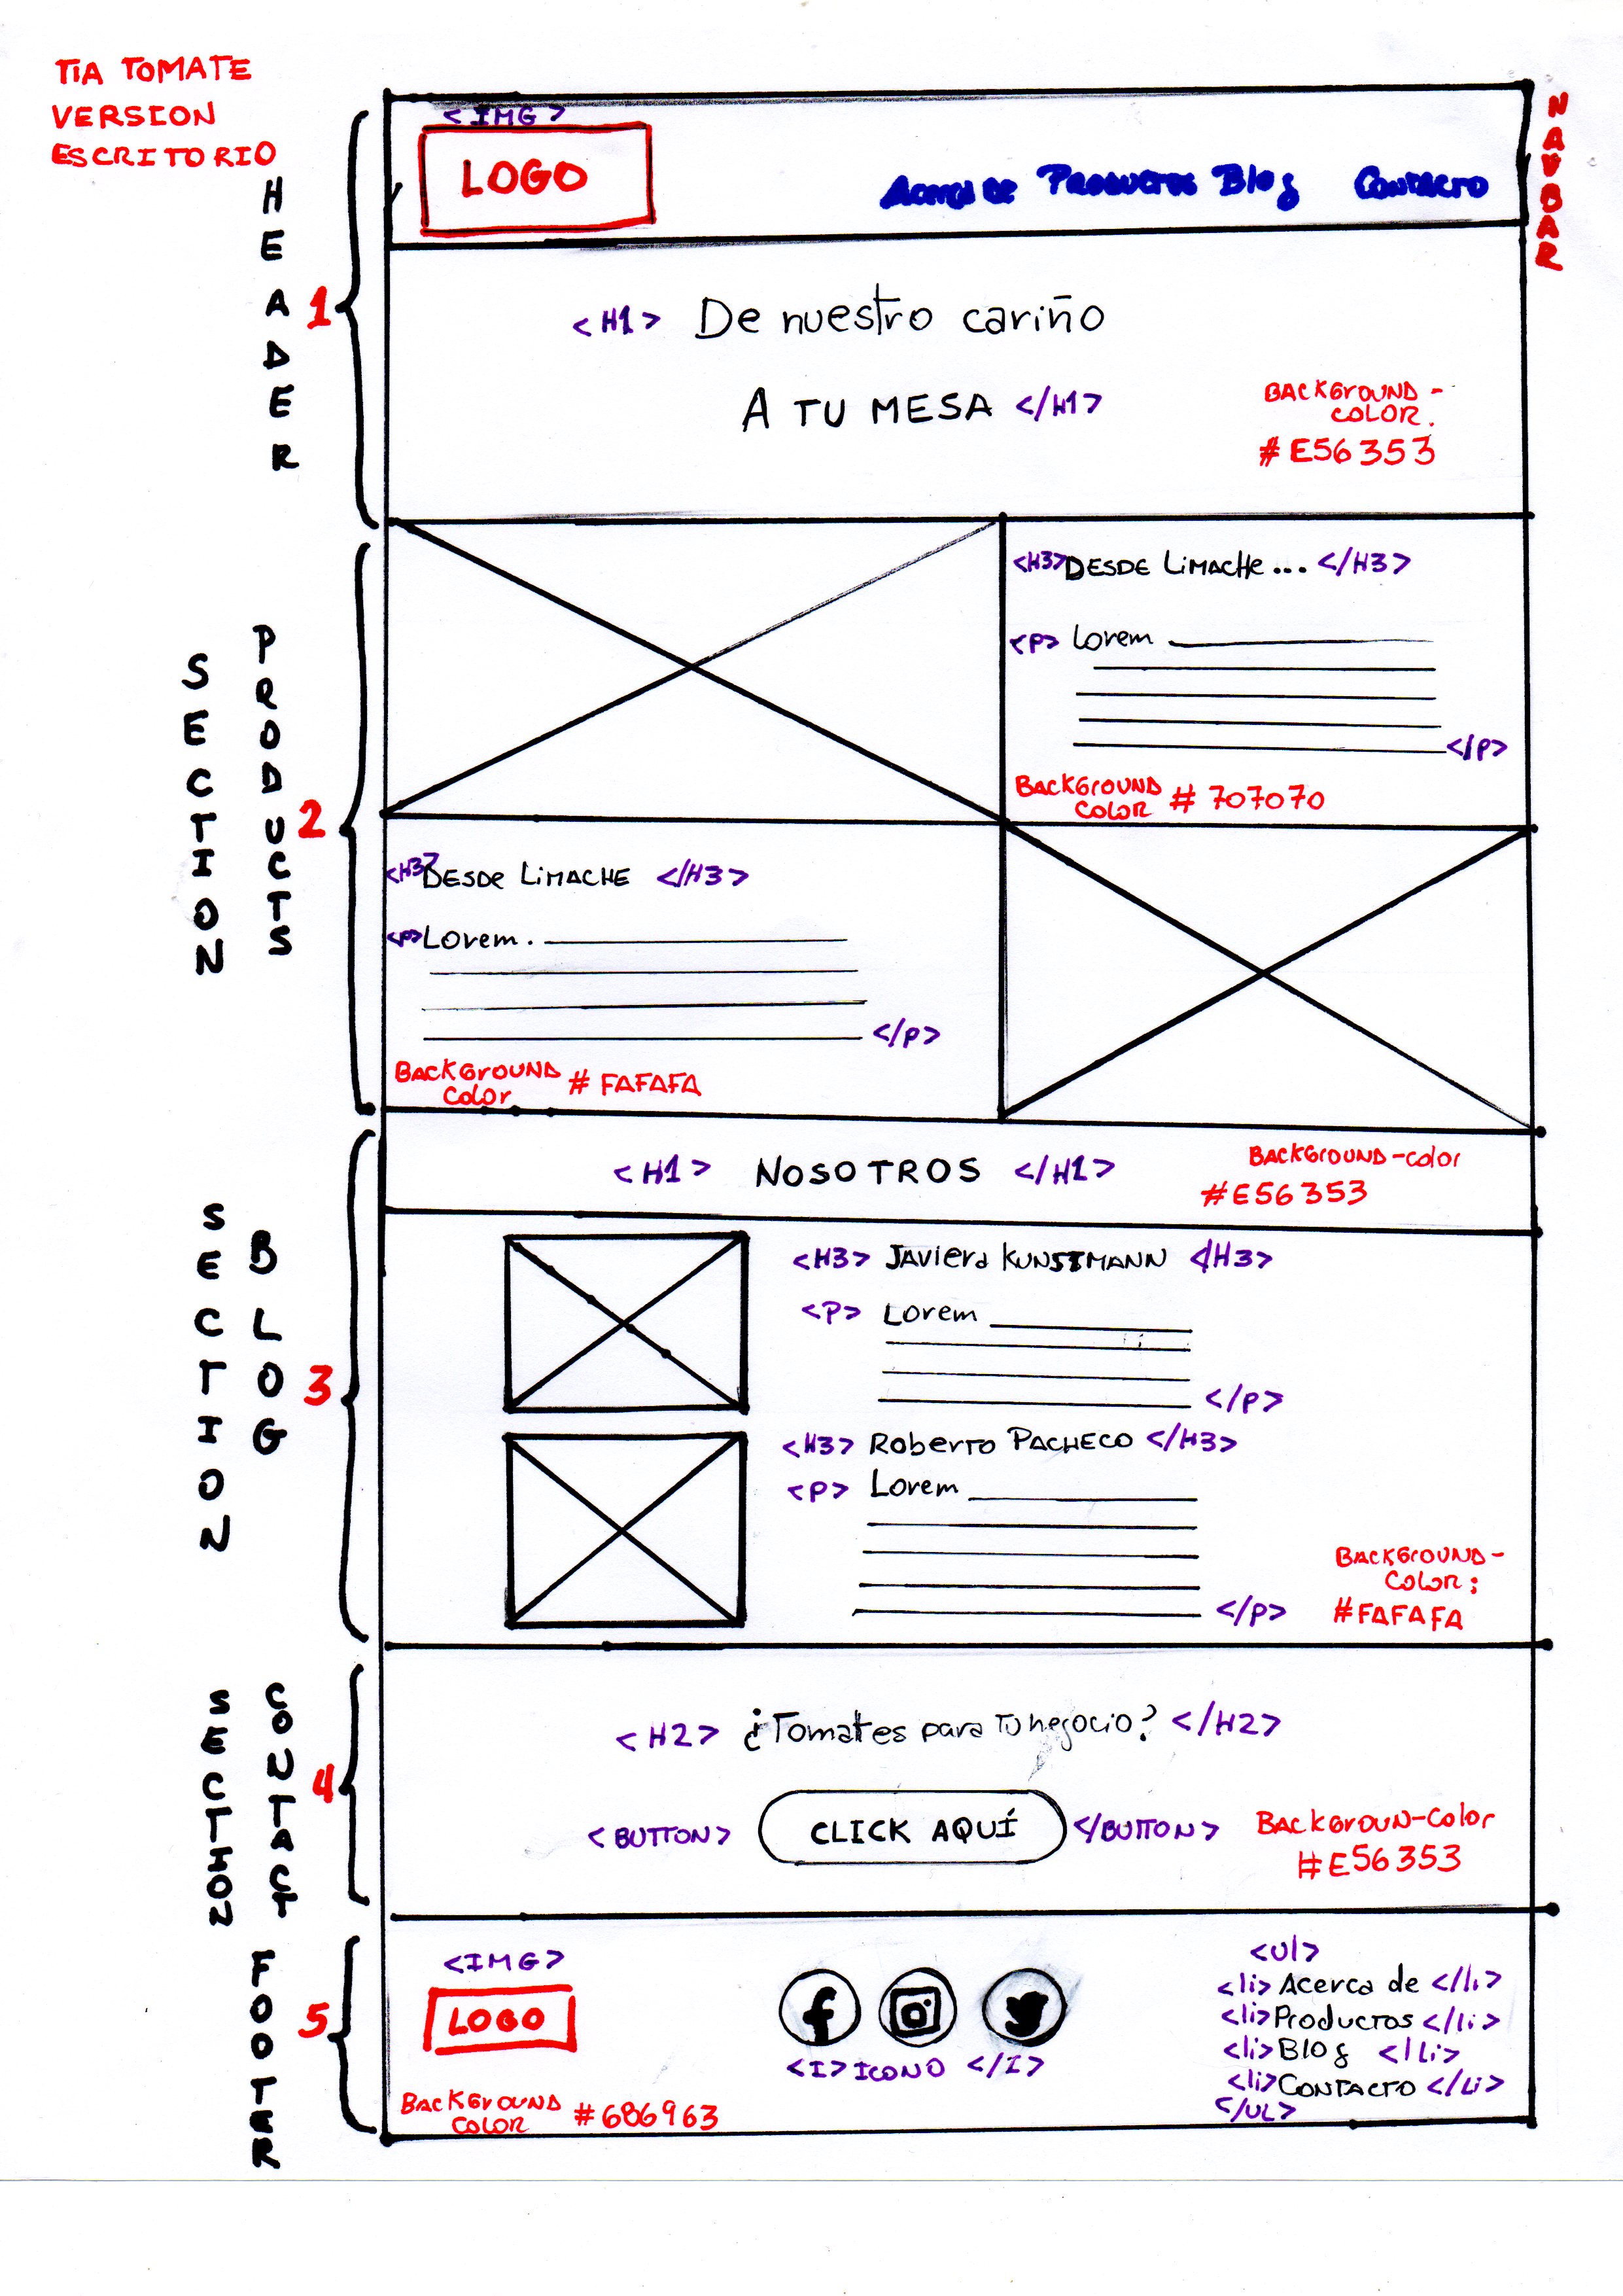 TIA TOMATE
VERSION
ESCRITORIO
NAVBAR
HEADER
1
<IMG>
LOGO
Acerca de Productos Blog Contacto
<H1> De nuestro cariño
A TU MESA </H1>
BACKGROUND-
COLOR.
#E56353
SECTION
PRODUCTS
2
<H3> DESDE LIMACHE ... </H3>
<P> Lorem
</P>
BACKGROUND
COLOR #707070
<H3> DESDE LIMACHE </H3>
<P> Lorem.
</P>
BACKGROUND
Color #FAFAFA
SECTION
BLOG
3
<H1> NOSOTROS </H1>
BACKGROUND-color
#E56353
<H3> Javiera KUNSTMANN </H3>
<P> Lorem
</P>
<H3> Roberto PACHECO </H3>
<P> Lorem
</P>
BACKGROUND-
COLOR:
#FAFAFA
SECTION
CONTACT
4
<H2> ¿Tomates para Tu negocio? </H2>
<BUTTON> CLICK AQUÍ </BUTTON>
BACKGROUN-Color
#E56353
FOOTER
5
<IMG>
LOGO
<I> ICONO </I>
<ul>
<li> Acerca de </li>
<li> Productos </li>
<li> Blog </li>
<li> CONTACTO </Li>
</UL>
BACKGROUND
COLOR #686963